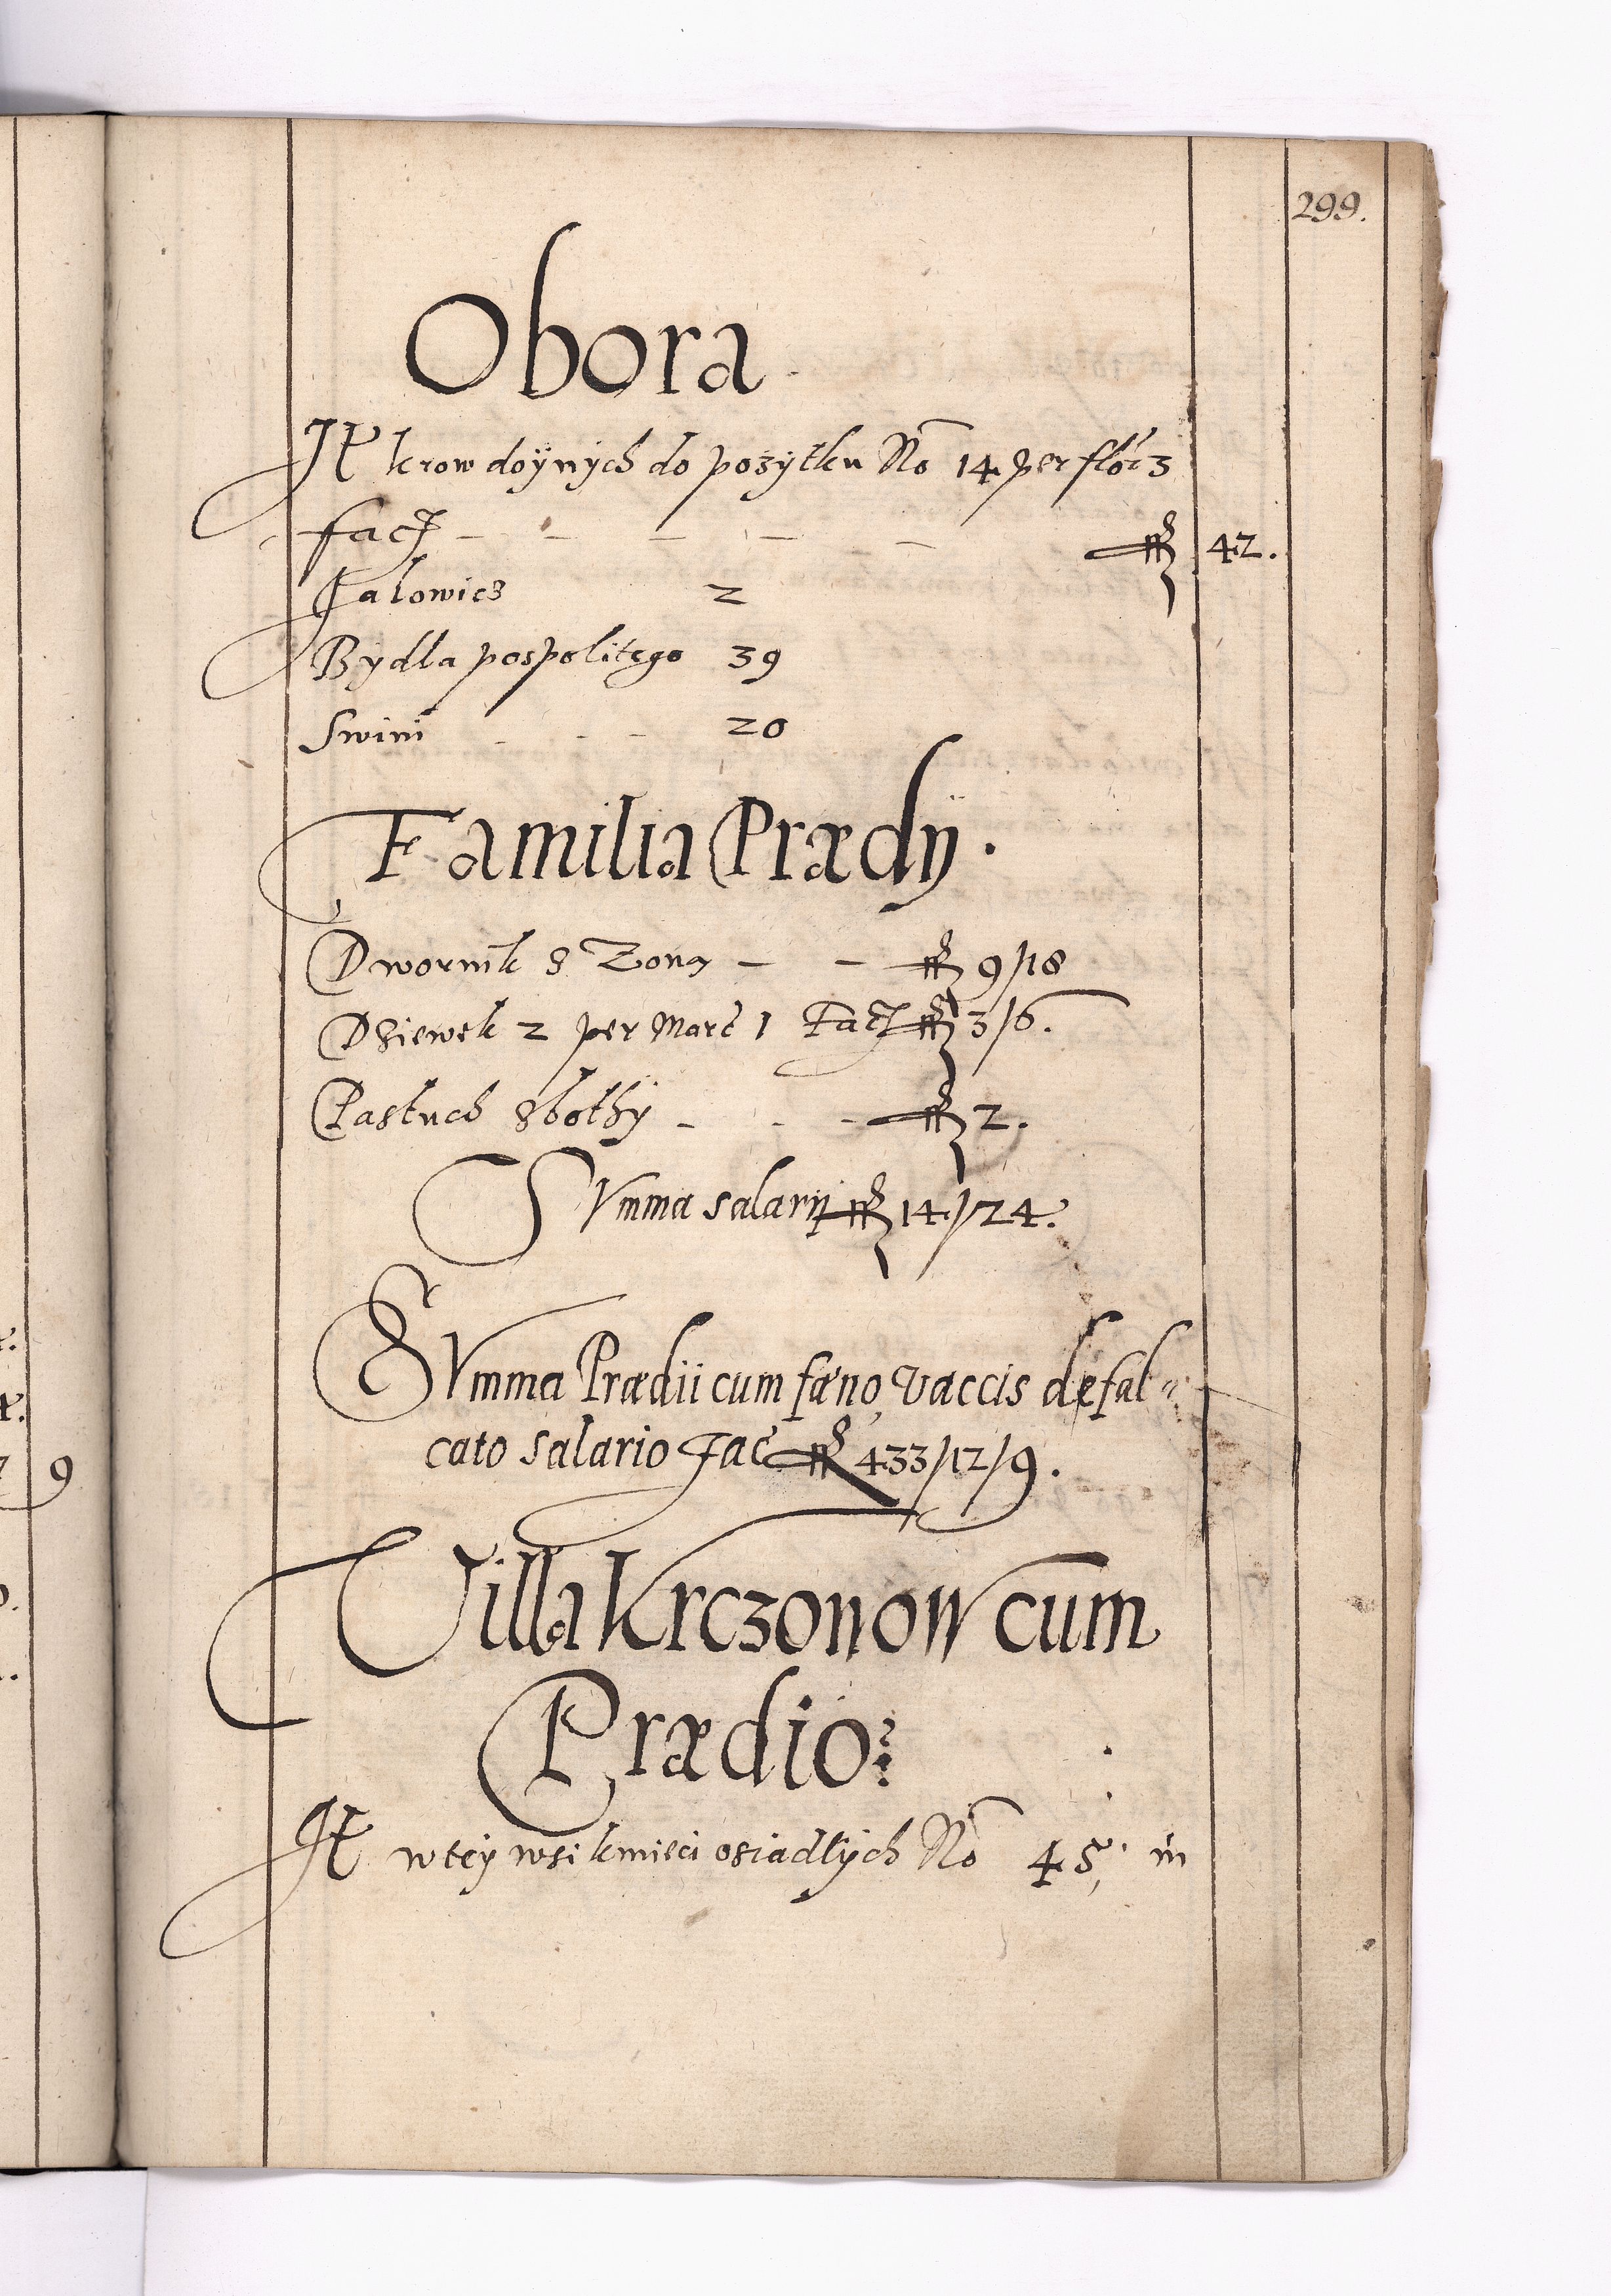 299.
Obora
It krow doÿnÿch do pozÿtku No 14 per flor 3
facj — — — — — 42.
Jalowicz 2
Bydla pospolitego 39
Swini - - - 20
Familia Prædÿ.
Dwornik z Zoną — — 9/18
Dziewek 2 per Marc 1 Facj 3/6.
Pastuch zbothÿ - - - 2.
SVmma salarÿ 14/24.
SVmma Prædii cum fæno, vaccis defal-
cato salario Fac 433/12/9.
Villa Krczonow cum
Prædio:
It w teÿ wsi kmieci osiadlÿch No 45, in
9